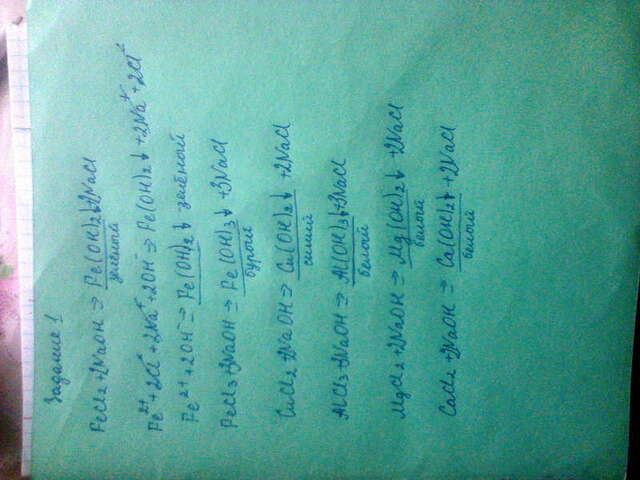 Задание 1
FeCl2 + 2NaOH => Fe(OH)2↓ + 2NaCl
зелёный
Fe²⁺ + 2Cl⁻ + 2Na⁺ + 2OH⁻ => Fe(OH)2↓ + 2Na⁺ + 2Cl⁻
Fe²⁺ + 2OH⁻ => Fe(OH)2↓ зелёный
FeCl3 + 3NaOH => Fe(OH)3↓ + 3NaCl
бурый
CuCl2 + 2NaOH => Cu(OH)2↓ + 2NaCl
синий
AlCl3 + 3NaOH => Al(OH)3↓ + 3NaCl
белый
MgCl2 + 2NaOH => Mg(OH)2↓ + 2NaCl
белый
CaCl2 + 2NaOH => Ca(OH)2↓ + 2NaCl
белый